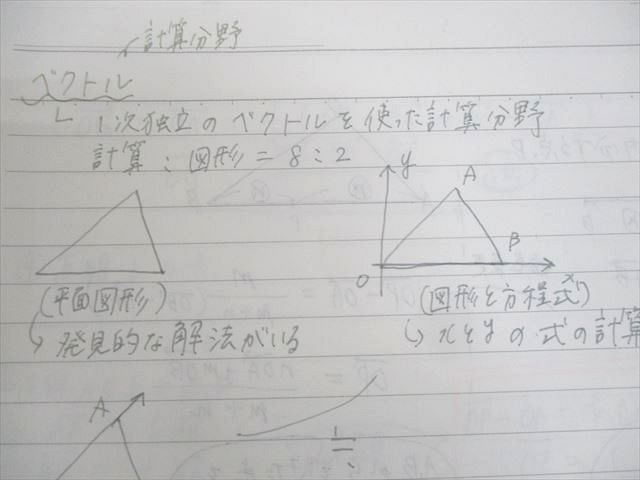 計算分野
ベクトル
1次独立のベクトルを使った計算分野
計算:図形=8:2
y
A
B
O
x
(平面図形)
(図形と方程式)
↳ 発見的な解法がいる
↳ xとyの式の計算
A